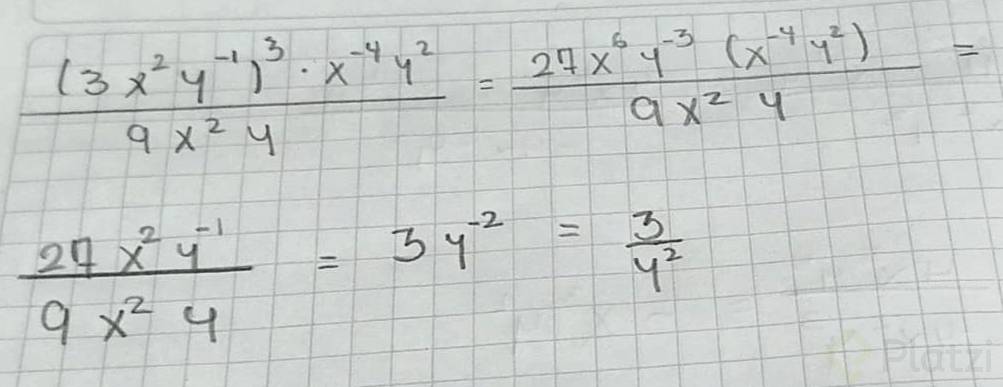 (3x²y⁻¹)³ · x⁻⁴y² / 9x²y = 27x⁶y⁻³ (x⁻⁴y²) / 9x²y =
27x²y⁻¹ / 9x²y = 3y⁻² = 3 / y²
Platzi